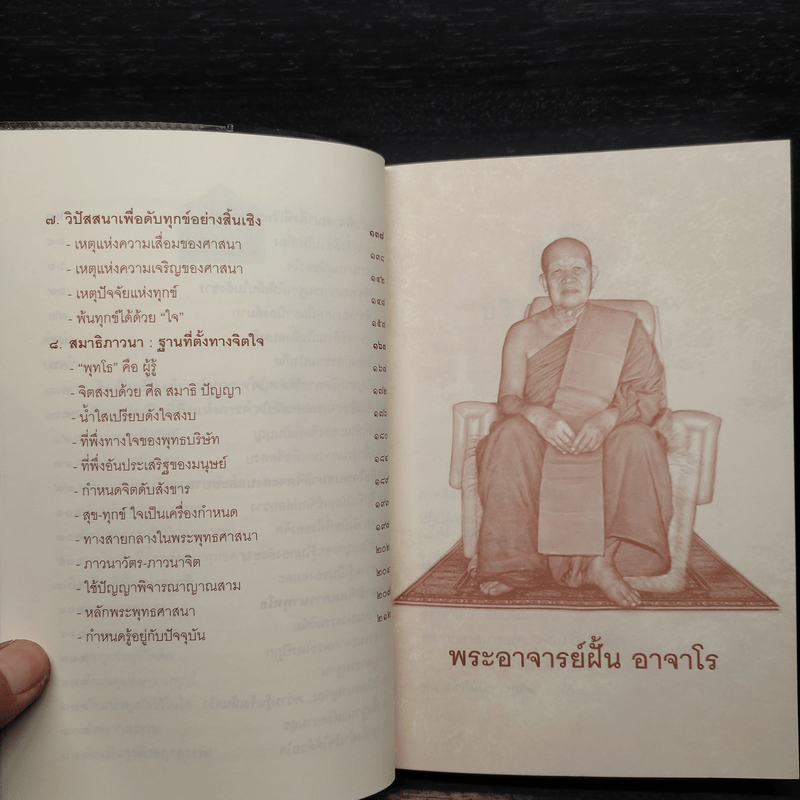 ๗. วิปัสสนาเพื่อดับทุกข์อย่างสิ้นเชิง ๑๓๗
- เหตุแห่งความเสื่อมของศาสนา ๑๓๘
- เหตุแห่งความเจริญของศาสนา ๑๔๒
- เหตุปัจจัยแห่งทุกข์
- พ้นทุกข์ได้ด้วย “ใจ”
๘. สมาธิภาวนา : ฐานที่ตั้งทางจิตใจ
- “พุทโธ” คือ ผู้รู้
- จิตสงบด้วย ศีล สมาธิ ปัญญา
- น้ำใสเปรียบดังใจสงบ
- ที่พึ่งทางใจของพุทธบริษัท ๑๘๐
- ที่พึ่งอันประเสริฐของมนุษย์ ๑๘๔
- กำหนดจิตดับสังขาร ๑๘๙
- สุข-ทุกข์ ใจเป็นเครื่องกำหนด
- ทางสายกลางในพระพุทธศาสนา
- ภาวนาวัตร-ภาวนาจิต ๒๐๒
- ใช้ปัญญาพิจารณาญาณสาม
- หลักพระพุทธศาสนา
- กำหนดรู้อยู่กับปัจจุบัน
พระอาจารย์ฝั้น อาจาโร